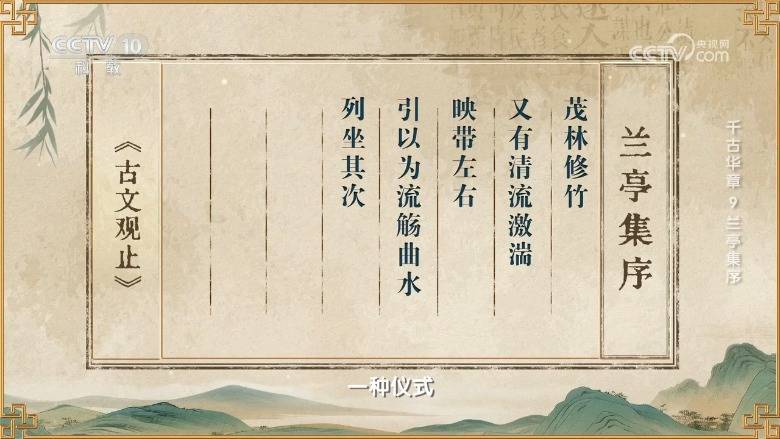 CCTV 10
科教
央视网
CCTV.com
兰亭集序
茂林修竹
又有清流激湍
映带左右
引以为流觞曲水
列坐其次
《古文观止》
千古华章 9 兰亭集序
一种仪式